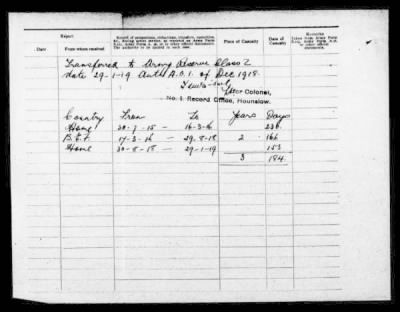 Report
Record of promotions, reductions, transfers, casualties,
&c., during active service, as reported on Army Form
B.213, Army Form A. 36, or in other official documents.
The authority to be quoted in each case.
Place of Casualty
Date of Casualty
Remarks
Taken from Army Form
B.213, Army Form A. 36,
or other official documents.
Date
From whom received
Transferred to Army Reserve Class Z
date 29-1-19 Auth A.O.1. of Dec 1918.
Colonel,
No. 1. Record Office, Hounslow.
Country From To Years Days
Home 30-7-15 – 16-3-16 230
B.E.F. 17-3-16 – 29-8-18 2 166
Home 30-8-18 – 29-1-19 153
3 184